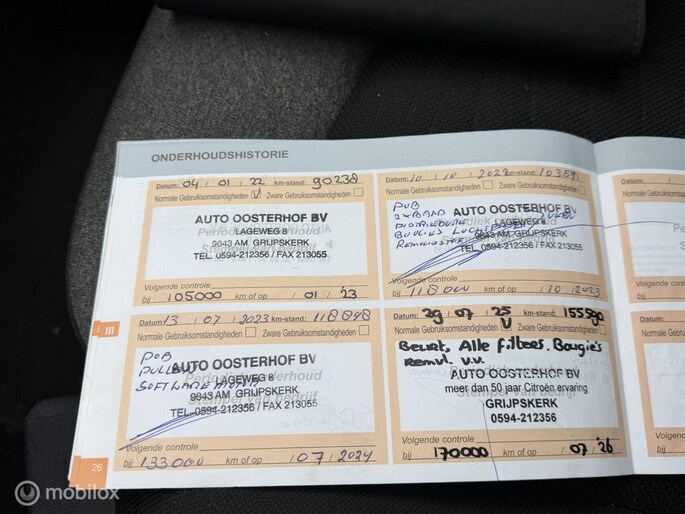 ONDERHOUDSHISTORIE
Datum: 04 / 01 / 22 km-stand: 90238
Normale Gebruiksomstandigheden V Zware Gebruiksomstandigheden
AUTO OOSTERHOF BV
LAGEWEG 8
9843 AM GRIJPSKERK
TEL. 0594-212356 / FAX 213055
Volgende controle
bij 105000 km of op / 01 / '23
Datum: 10 / 10 / 2022 km-stand: 103591
Normale Gebruiksomstandigheden Zware Gebruiksomstandigheden
POB
2XBAND
AUTO OOSTERHOF BV
LAGEWEG 8
9843 AM GRIJPSKERK
TEL. 0594-212356 / FAX 213055
Volgende controle
bij 118000 km of op / 10 / 2023
III
Datum: 13 / 07 / 2023 km-stand: 118848
Normale Gebruiksomstandigheden Zware Gebruiksomstandigheden
POB
AUTO OOSTERHOF BV
LAGEWEG 8
SOFTWARE
9843 AM GRIJPSKERK
TEL. 0594-212356 / FAX 213055
Periodiek onderhoud
Stempel van bedrijf
Volgende controle
bij 133000 km of op / 07 / 2024
Datum: 29 / 07 / 25 km-stand: 155590
Normale Gebruiksomstandigheden V Zware Gebruiksomstandigheden
Beurt, Alle filters. Bougie's
Remvl. v.v.
AUTO OOSTERHOF BV
meer dan 50 jaar Citroën ervaring
GRIJPSKERK
0594-212356
Volgende controle
bij 170000 km of op / 07 / '26
26
© mobilox